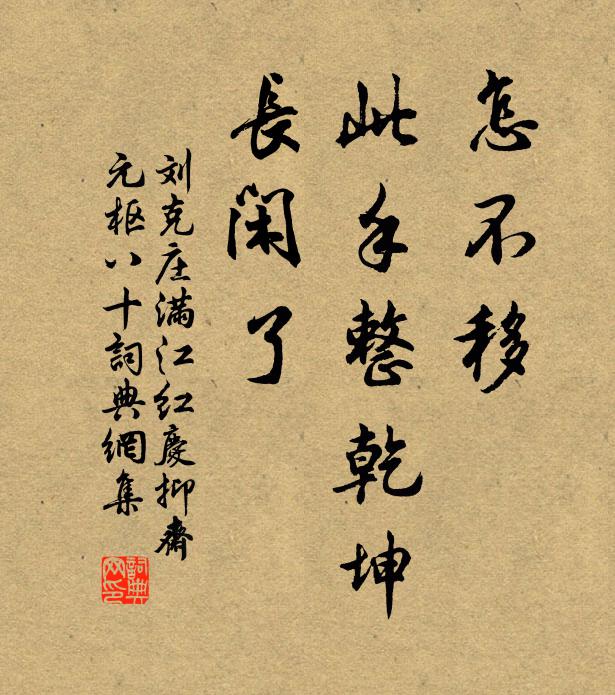 怎不移
此手整乾坤
長閑了
刘克庄滿江紅慶抑齋
元枢八十詞典網集
詞典
网印